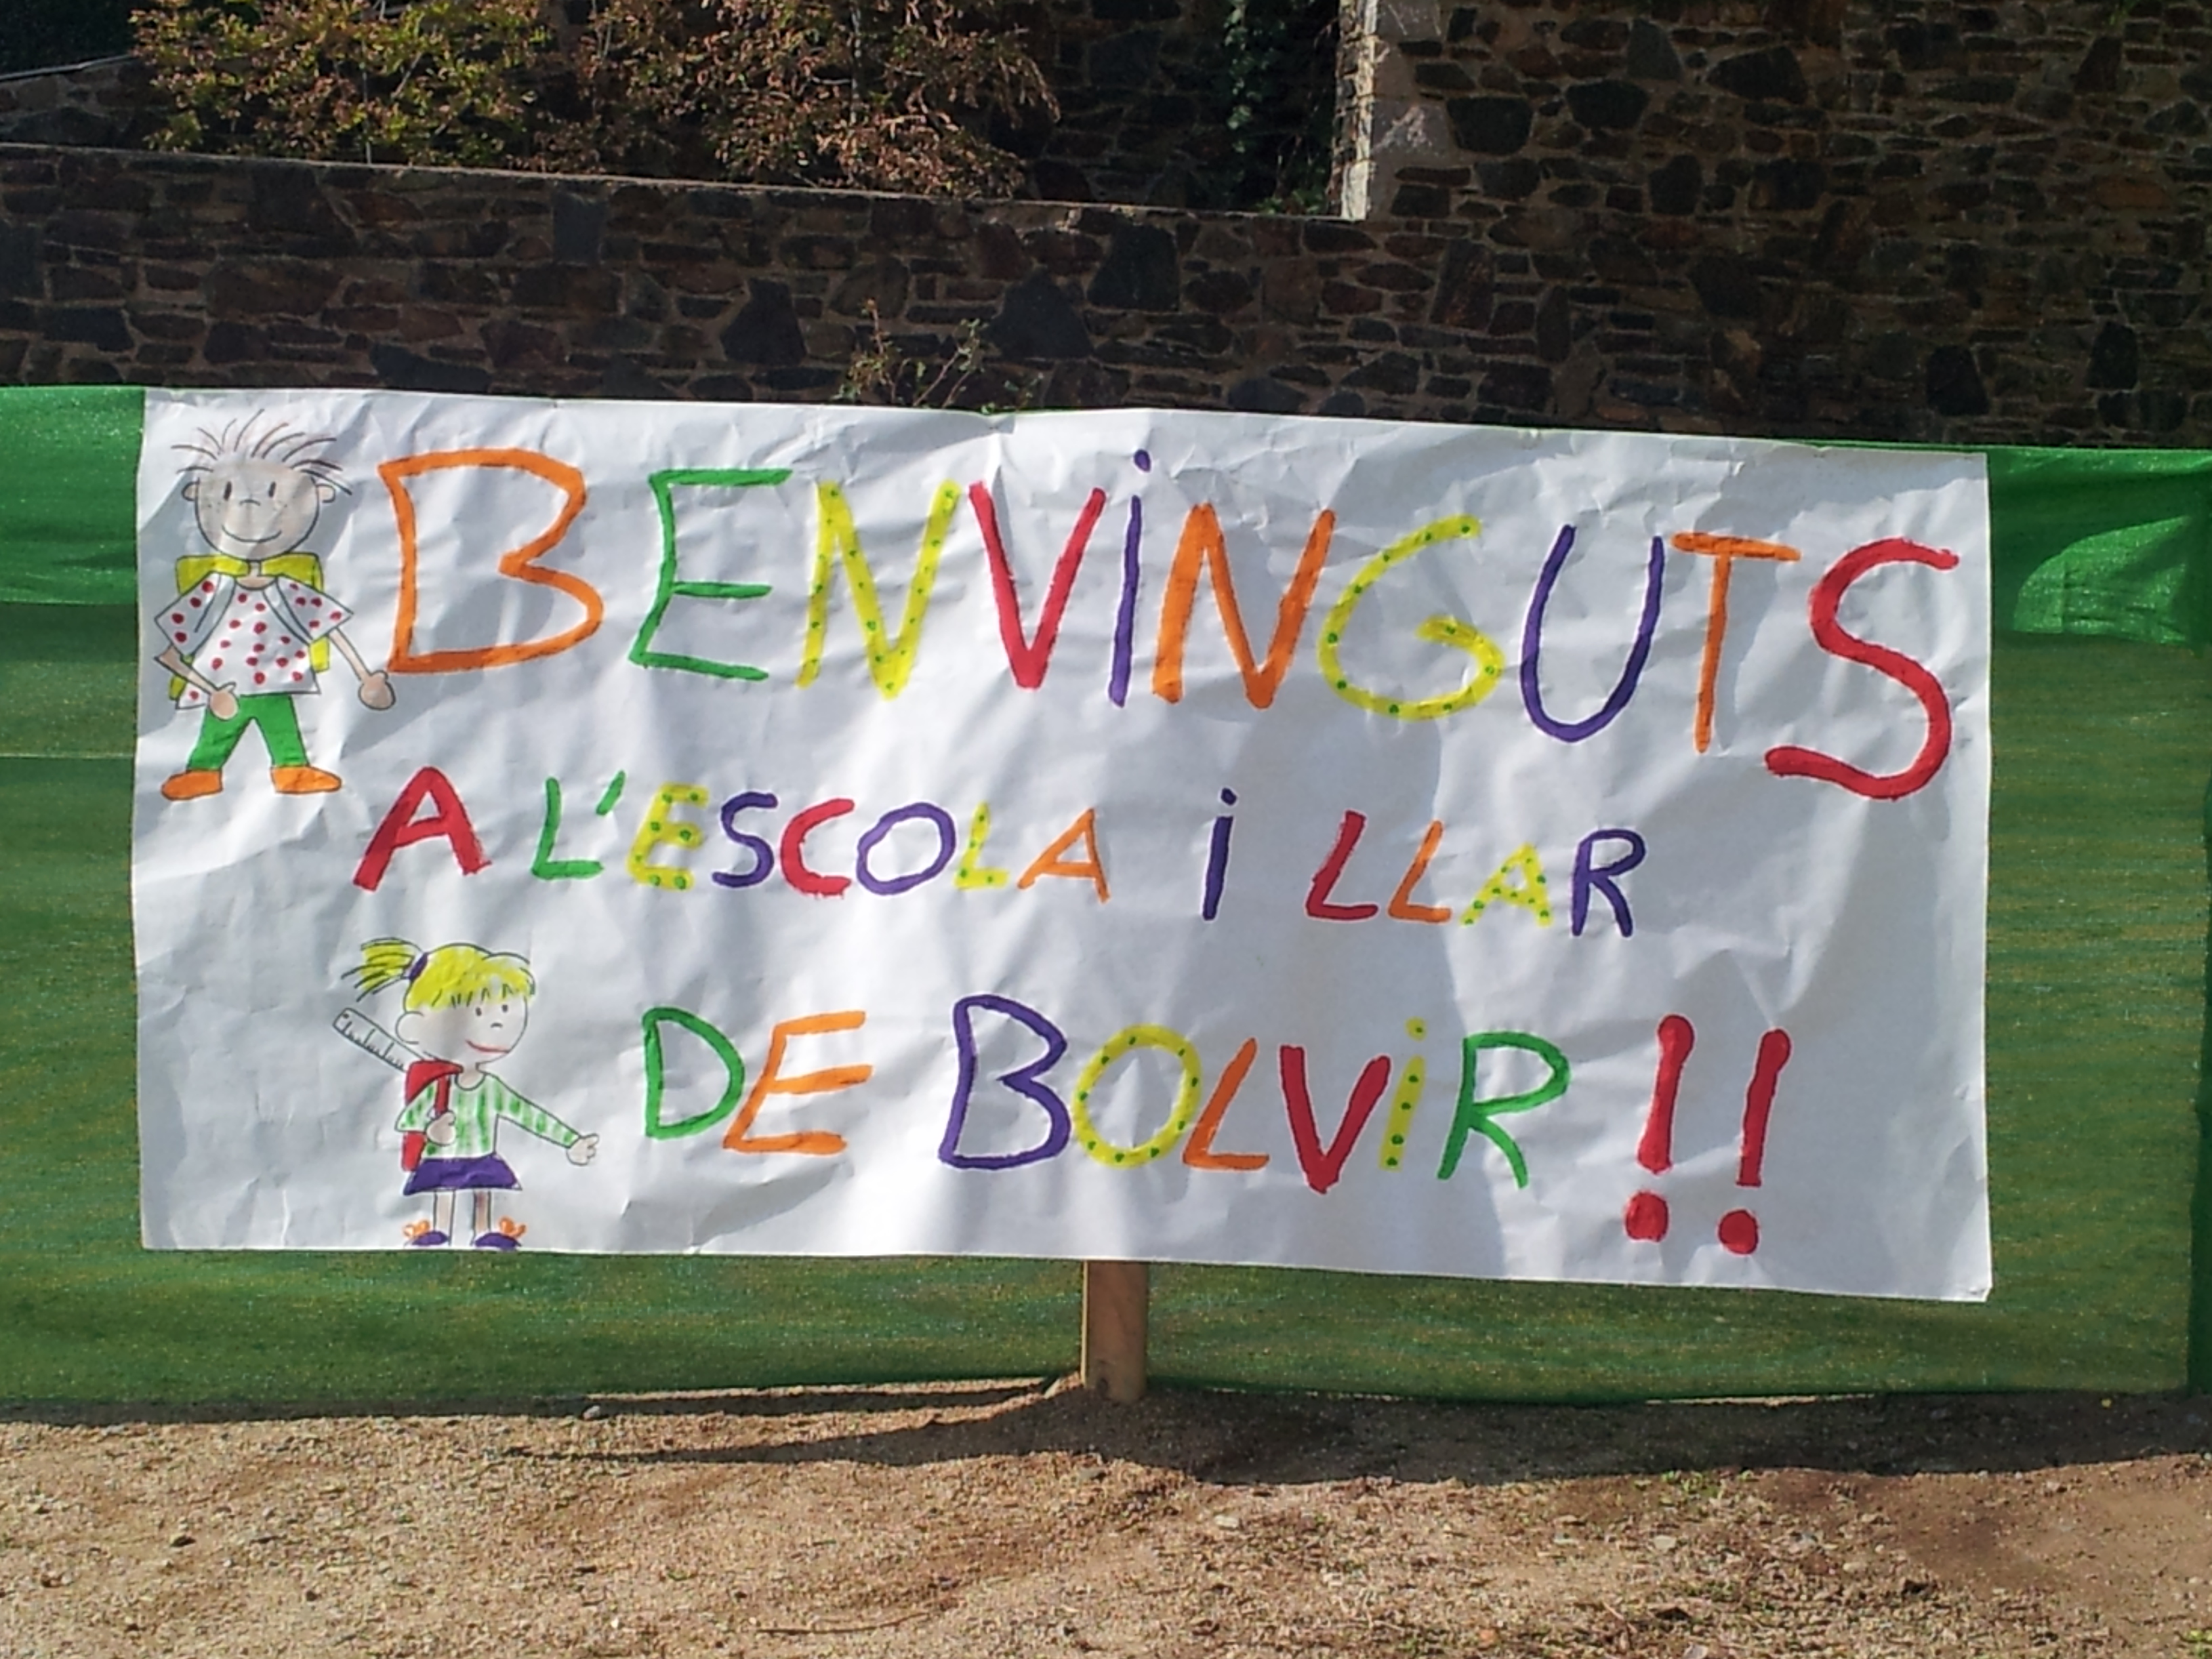 BENViNGUTS
A L'ESCOLA i LLAR
DE BOLViR!!